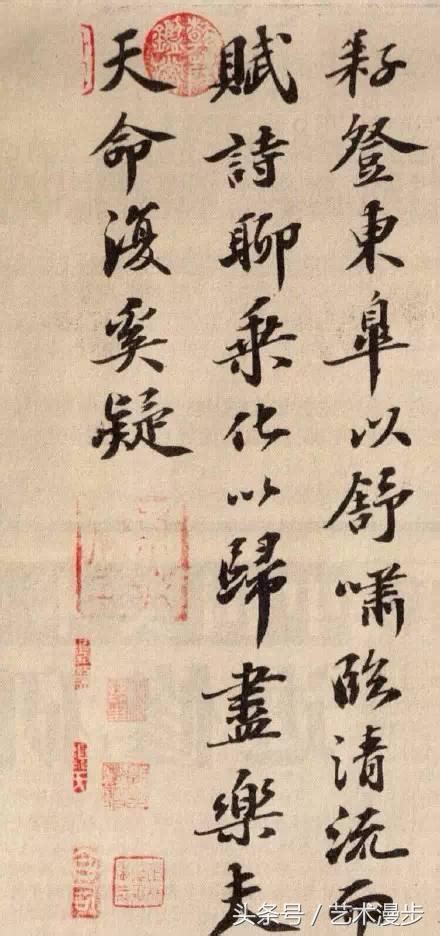 耔登東皐以舒嘯臨清流而
賦詩聊乘化以歸盡樂夫
天命復奚疑
头条号 / 艺术漫步